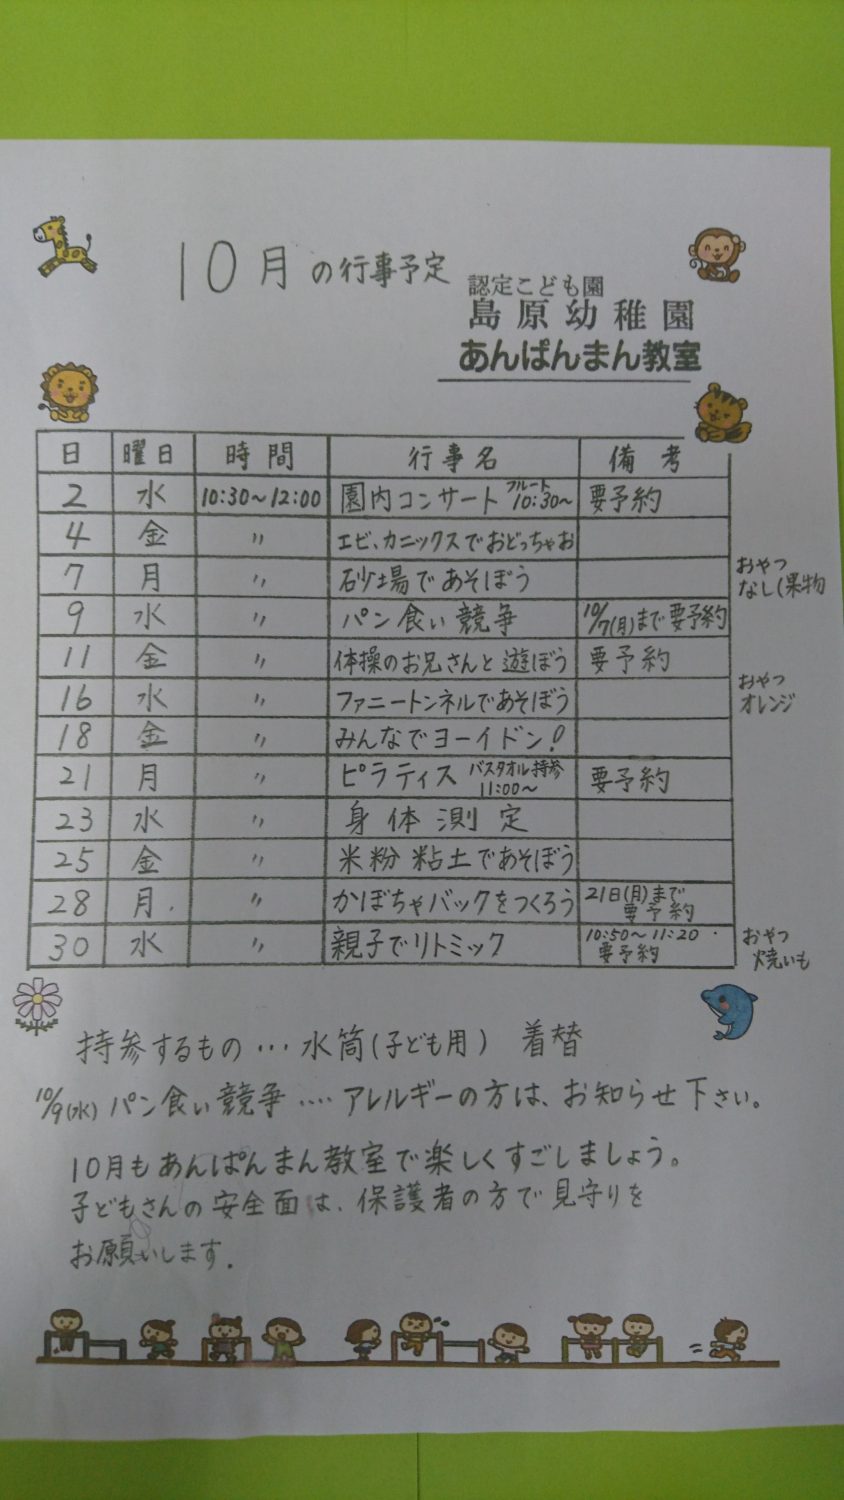 10月の行事予定
認定こども園
島原幼稚園
あんぱんまん教室
日 曜日 時間 行事名 備考
2 水 10:30～12:00 園内コンサート フルート 10:30～ 要予約
4 金 〃 エビ、カニックスでおどっちゃお
7 月 〃 砂場であそぼう おやつ なし(果物
9 水 〃 パン食い競争 10/7(月)まで要予約
11 金 〃 体操のお兄さんと遊ぼう 要予約
16 水 〃 ファニートンネルであそぼう おやつ オレンジ
18 金 〃 みんなでヨーイドン!
21 月 〃 ピラティス バスタオル持参 11:00～ 要予約
23 水 〃 身体測定
25 金 〃 米粉粘土であそぼう
28 月 〃 かぼちゃバックをつくろう 21日(月)まで 要予約
30 水 〃 親子でリトミック 10:50～11:20 要予約 おやつ 焼いも
持参するもの…水筒(子ども用) 着替
10/9(水) パン食い競争‥‥アレルギーの方は、お知らせ下さい。
10月もあんぱんまん教室で楽しくすごしましょう。
子どもさんの安全面は、保護者の方で見守りを
お願いします.